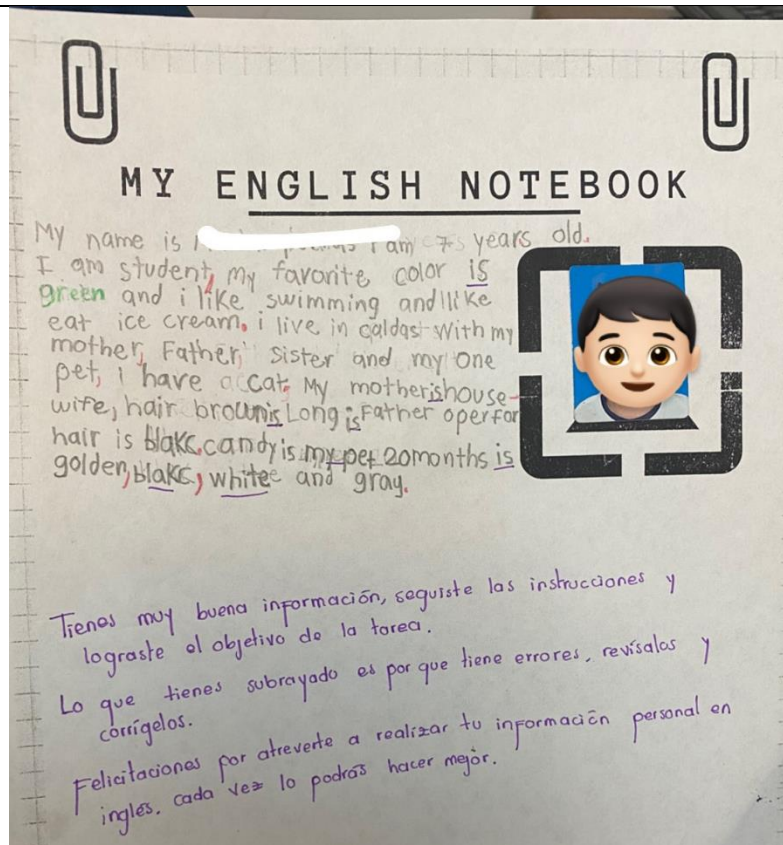 MY ENGLISH NOTEBOOK
My name is I am 7 years old.
I am student, my favorite color is
green and i like swimming and I like
eat ice cream. i live in caldas with my
mother, Father, Sister and my one
pet, i have a cat. My mother is house-
wife, hair brown is Long is Father operfor
hair is blakc, candy is my pet 20 months is
golden, blakc, white and gray.
Tienes muy buena información, seguiste las instrucciones y
lograste el objetivo de la tarea.
Lo que tienes subrayado es por que tiene errores, revísalos y
corrígelos.
Felicitaciones por atreverte a realizar tu información personal en
inglés, cada vez lo podrás hacer mejor.